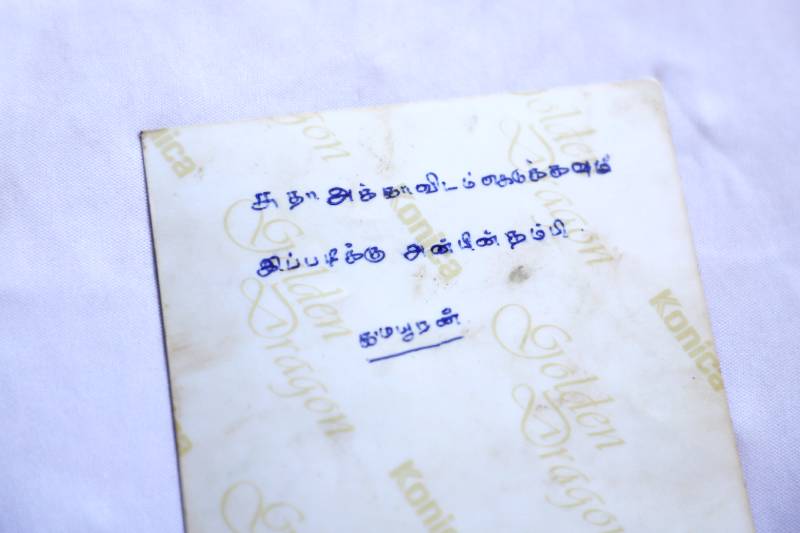 சுதா அக்காவிடம் கொடுக்கவும்
இப்படிக்கு அன்பின் தம்பி
குமயூரன்
Konica
Golden
Dragon
Konica
Golden
Dragon
Konica
Golden
Dragon
Konica